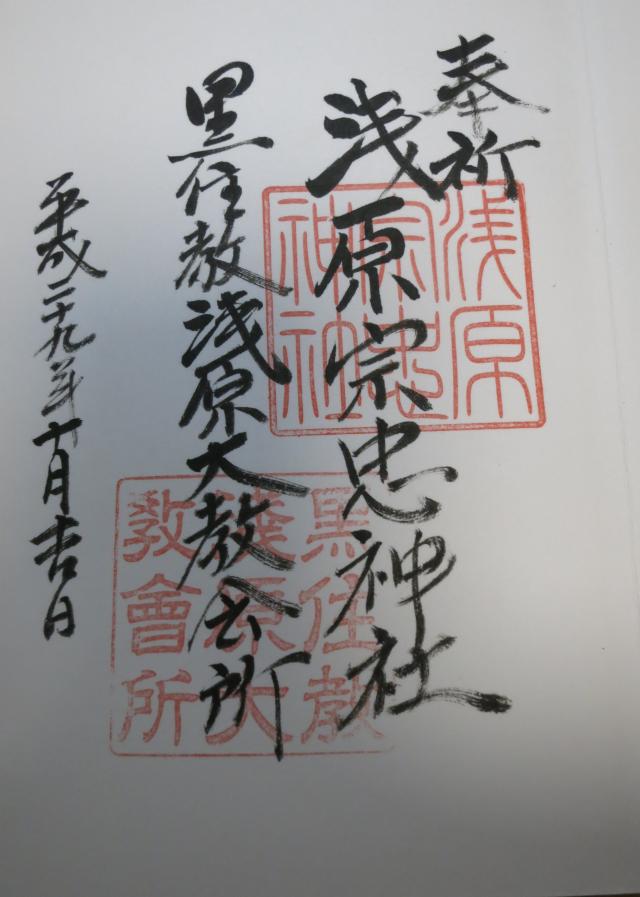 奉祈
浅原宗忠神社
黒住教浅原大教会所
平成二十九年十月吉日
浅原
宗忠
神社
黒住教
淺原大
教會所